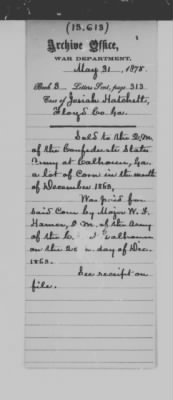 (13,613)
Archive Office,
WAR DEPARTMENT,
May 31, 1878.
Book 3 Letters Sent, page 313
Case of Josiah Hatchett,
Floyd Co. Ga.
Sold to the Q.M.
of the Confederate States
Army at Calhoun, Ga.
a lot of Corn in the month
of December 1863,
Was paid for
said Corn by Major W. F.
Q. M. of the Army
of the Calhoun
on the day of Dec.
1863.
See receipt on
file.